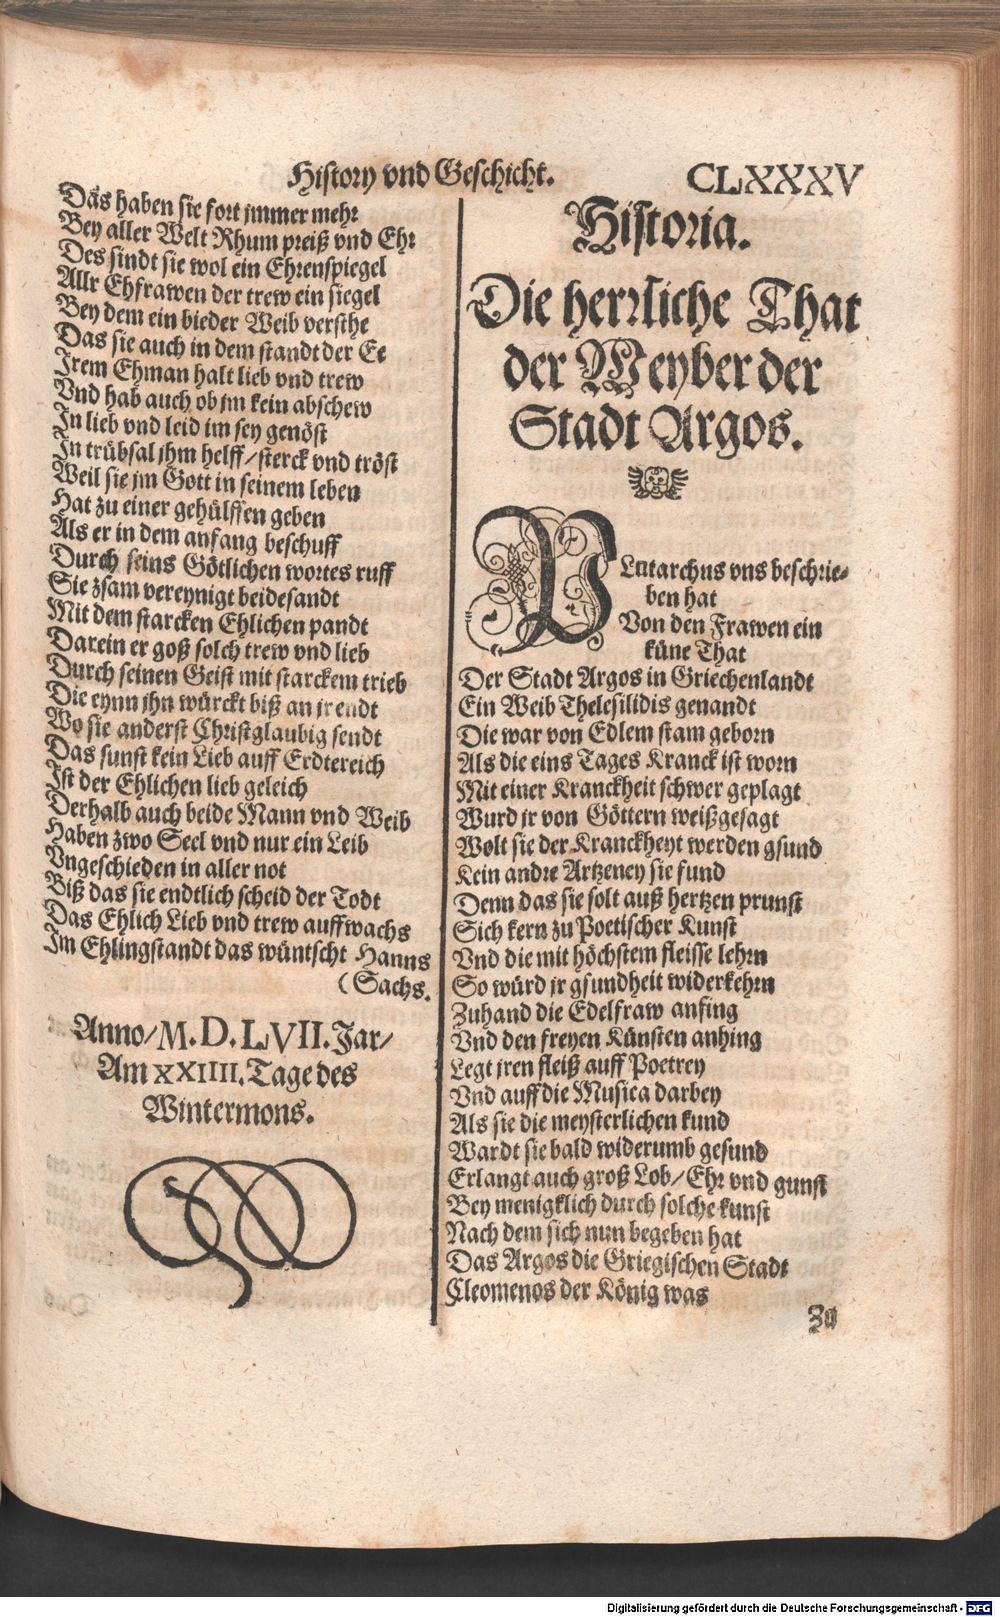 History vnd Geschicht.
CLXXXV
Das haben sie fort jmmer mehr
Bey aller Welt Rhum preiß vnd Ehr
Des sindt sie wol ein Ehrenspiegel
Allr Ehfrawen der trew ein siegel
Bey dem ein bieder Weib versthe
Das sie auch in dem standt der Ee
Irem Ehman halt lieb vnd trew
Vnd hab auch ob jm kein abschew
In lieb vnd leid im sey genöst
In trübsal jhm helff/sterck vnd tröst
Weil sie jm Gott in seinem leben
Hat zu einer gehülffen geben
Als er in dem anfang beschuff
Durch seins Götlichen wortes ruff
Sie zsam vereynigt beidesandt
Mit dem starcken Ehlichen pandt
Darein er goß solch trew vnd lieb
Durch seinen Geist mit starckem trieb
Die eynn jhn würckt biß an jr endt
Wo sie anderst Christglaubig sendt
Das sunst kein Lieb auff Erdtereich
Ist der Ehlichen lieb geleich
Derhalb auch beide Mann vnd Weib
Haben zwo Seel vnd nur ein Leib
Vngeschieden in aller not
Biß das sie endtlich scheid der Todt
Das Ehlich Lieb vnd trew auffwachs
Im Ehlingstandt das wüntscht Hanns
(Sachs.
Anno/M.D.LVII.Jar/
Am XXIIII.Tage des
Wintermons.
Historia.
Die herrliche That
der Weyber der
Stadt Argos.
PLutarchus vns beschrie-
ben hat
Von den Frawen ein
küne That
Der Stadt Argos in Griechenlandt
Ein Weib Thelesilidis genandt
Die war von Edlem stam geborn
Als die eins Tages Kranck ist worn
Mit einer Kranckheit schwer geplagt
Wurd jr von Göttern weißgesagt
Wolt sie der Kranckheyt werden gsund
Kein andre Artzeney sie fund
Denn das sie solt auß hertzen prunst
Sich kern zu Poetischer Kunst
Vnd die mit höchstem fleisse lehrn
So würd jr gsundheit widerkehrn
Zuhand die Edelfraw anfing
Vnd den freyen Künsten anhing
Legt jren fleiß auff Poetrey
Vnd auff die Musica darbey
Als sie die meysterlichen kund
Wardt sie bald widerumb gesund
Erlangt auch groß Lob/Ehr vnd gunst
Bey menigklich durch solche kunst
Nach dem sich nun begeben hat
Das Argos die Griegischen Stadt
Cleomenos der König was
Zu
Digitalisierung gefördert durch die Deutsche Forschungsgemeinschaft - DFG